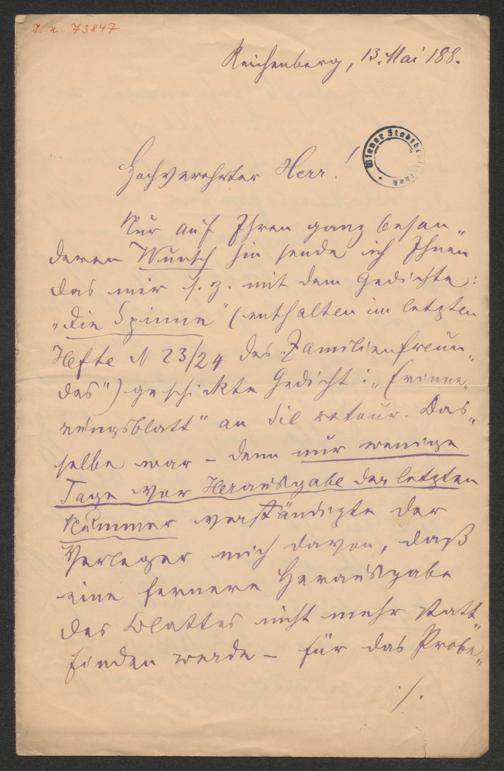 J. N. 73847
Reichenberg, 13. Mai 188.
Wiener Stadtbibliothek
Hochverehrter Herr!
Nur auf Ihren ganz beson„
deren Wunsch hin sende ich Ihnen
das mir s. z. mit dem Gedichte:
„Die Spinne“ (enthalten im letzten
Hefte N 23/24 des „Familienfreun„
des“) geschickte Gedicht: „Erinne„
rungsblatt“ an Sie retour. Das„
selbe war – denn nur wenige
Tage vor Herausgabe der letzten
Nummer verständigte der
Verleger mich davon, daß
eine fernere Herausgabe
des Blattes nicht mehr statt„
finden werde – für das Probe„
./.